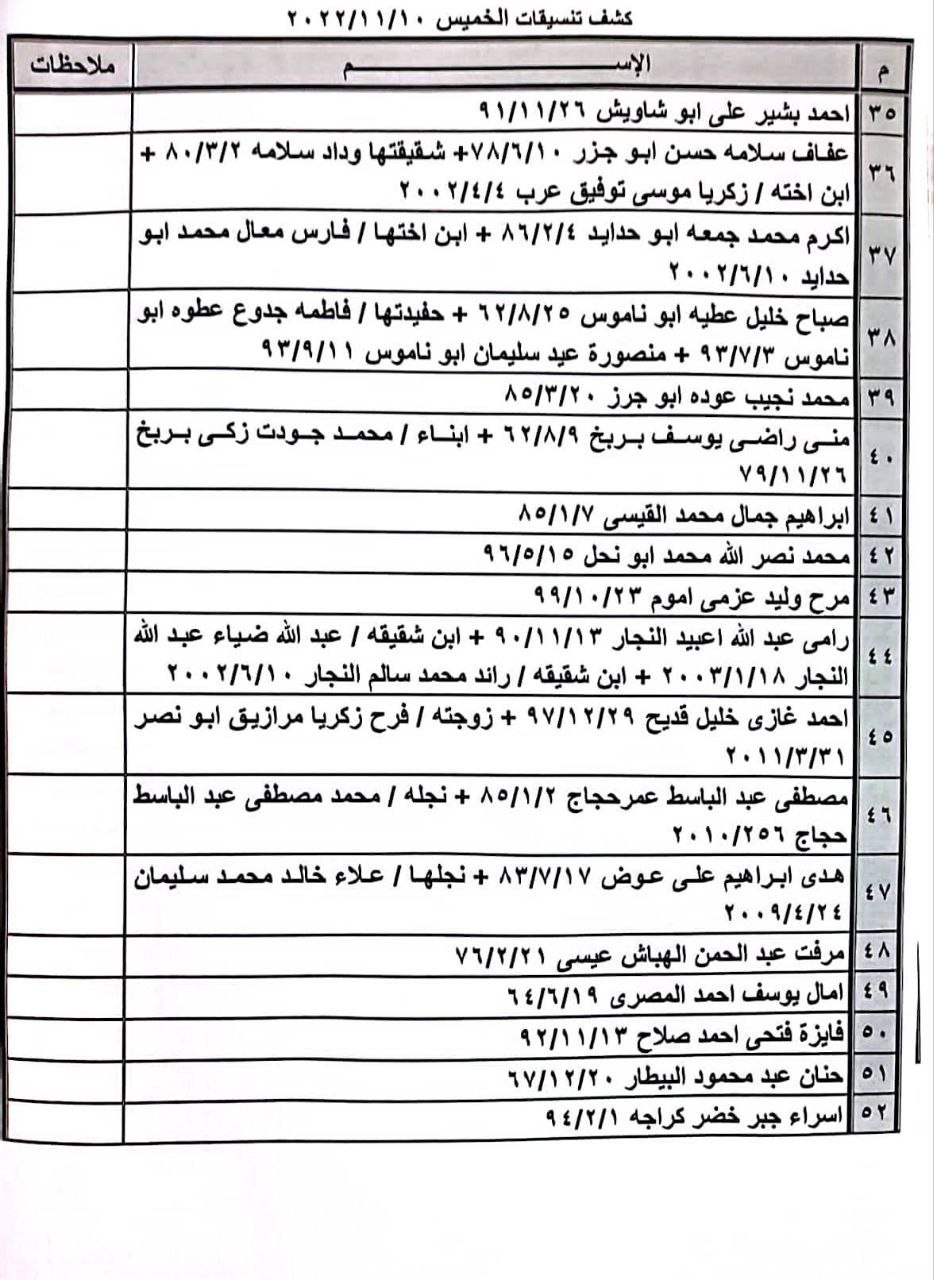 كشف تنسيقات الخميس ٢٠٢٢/١١/١٠
م الإســـم ملاحظات
٣٥ احمد بشير على ابو شاويش ٩١/١١/٢٦
٣٦ عفاف سلامه حسن ابو جزر ٧٨/٦/١٠+ شقيقتها وداد سلامه ٨٠/٣/٢ +
ابن اخته / زكريا موسى توفيق عرب ٢٠٠٢/٤/٤
٣٧ اكرم محمد جمعه ابو حدايد ٨٦/٢/٤ + ابن اختها / فارس معال محمد ابو
حدايد ٢٠٠٢/٦/١٠
٣٨ صباح خليل عطيه ابو ناموس ٦٢/٨/٢٥ + حفيدتها / فاطمه جدوع عطوه ابو
ناموس ٩٣/٧/٣ + منصورة عيد سليمان ابو ناموس ٩٣/٩/١١
٣٩ محمد نجيب عوده ابو جرز ٨٥/٣/٢٠
٤٠ منى راضى يوسف بربخ ٦٢/٨/٩ + ابناء / محمد جودت زكى بربخ
٧٩/١١/٢٦
٤١ ابراهيم جمال محمد القيسى ٨٥/١/٧
٤٢ محمد نصر الله محمد ابو نحل ٩٦/٥/١٥
٤٣ مرح وليد عزمى اموم ٩٩/١٠/٢٣
٤٤ رامى عبد الله اعبيد النجار ٩٠/١١/١٣ + ابن شقيقه / عبد الله ضياء عبد الله
النجار ٢٠٠٣/١/١٨ + ابن شقيقه / رائد محمد سالم النجار ٢٠٠٢/٦/١٠
٤٥ احمد غازى خليل قديح ٩٧/١٢/٢٩ + زوجته / فرح زكريا مرازيق ابو نصر
٢٠١١/٣/٣١
٤٦ مصطفى عبد الباسط عمرحجاج ٨٥/١/٢ + نجله / محمد مصطفى عبد الباسط
حجاج ٢٠١٠/٢٥٦
٤٧ هدى ابراهيم على عوض ٨٣/٧/١٧ + نجلها / علاء خالد محمد سليمان
٢٠٠٩/٤/٢٤
٤٨ مرفت عبد الحمن الهباش عيسى ٧٦/٢/٢١
٤٩ امال يوسف احمد المصرى ٦٤/٦/١٩
٥٠ فايزة فتحى احمد صلاح ٩٢/١١/١٣
٥١ حنان عبد محمود البيطار ٦٧/١٢/٢٠
٥٢ اسراء جبر خضر كراجه ٩٤/٢/١